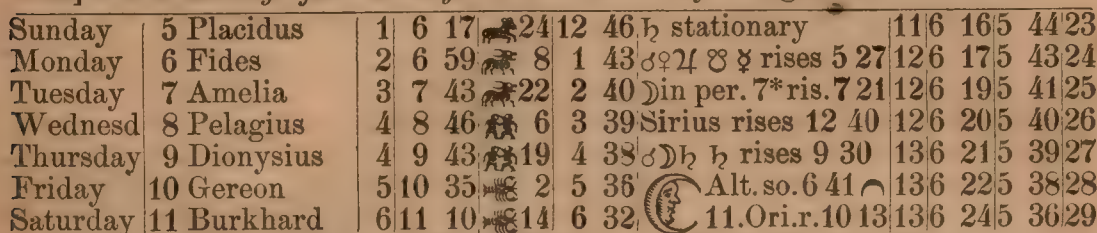 Sunday 5 Placidus 1 6 17 24 12 46 ♄ stationary 11 6 16 5 44 23
Monday 6 Fides 2 6 59 8 1 43 ☌♀♃ ☿ rises 5 27 12 6 17 5 43 24
Tuesday 7 Amelia 3 7 43 22 2 40 ☽in per. 7*ris.7 21 12 6 19 5 41 25
Wednesd 8 Pelagius 4 8 46 6 3 39 Sirius rises 12 40 12 6 20 5 40 26
Thursday 9 Dionysius 4 9 43 19 4 38 ☌☽♄ ♄ rises 9 30 13 6 21 5 39 27
Friday 10 Gereon 5 10 35 2 5 36 Alt. so. 6 41 13 6 22 5 38 28
Saturday 11 Burkhard 6 11 10 14 6 32 11.Ori.r.10 13 13 6 24 5 36 29